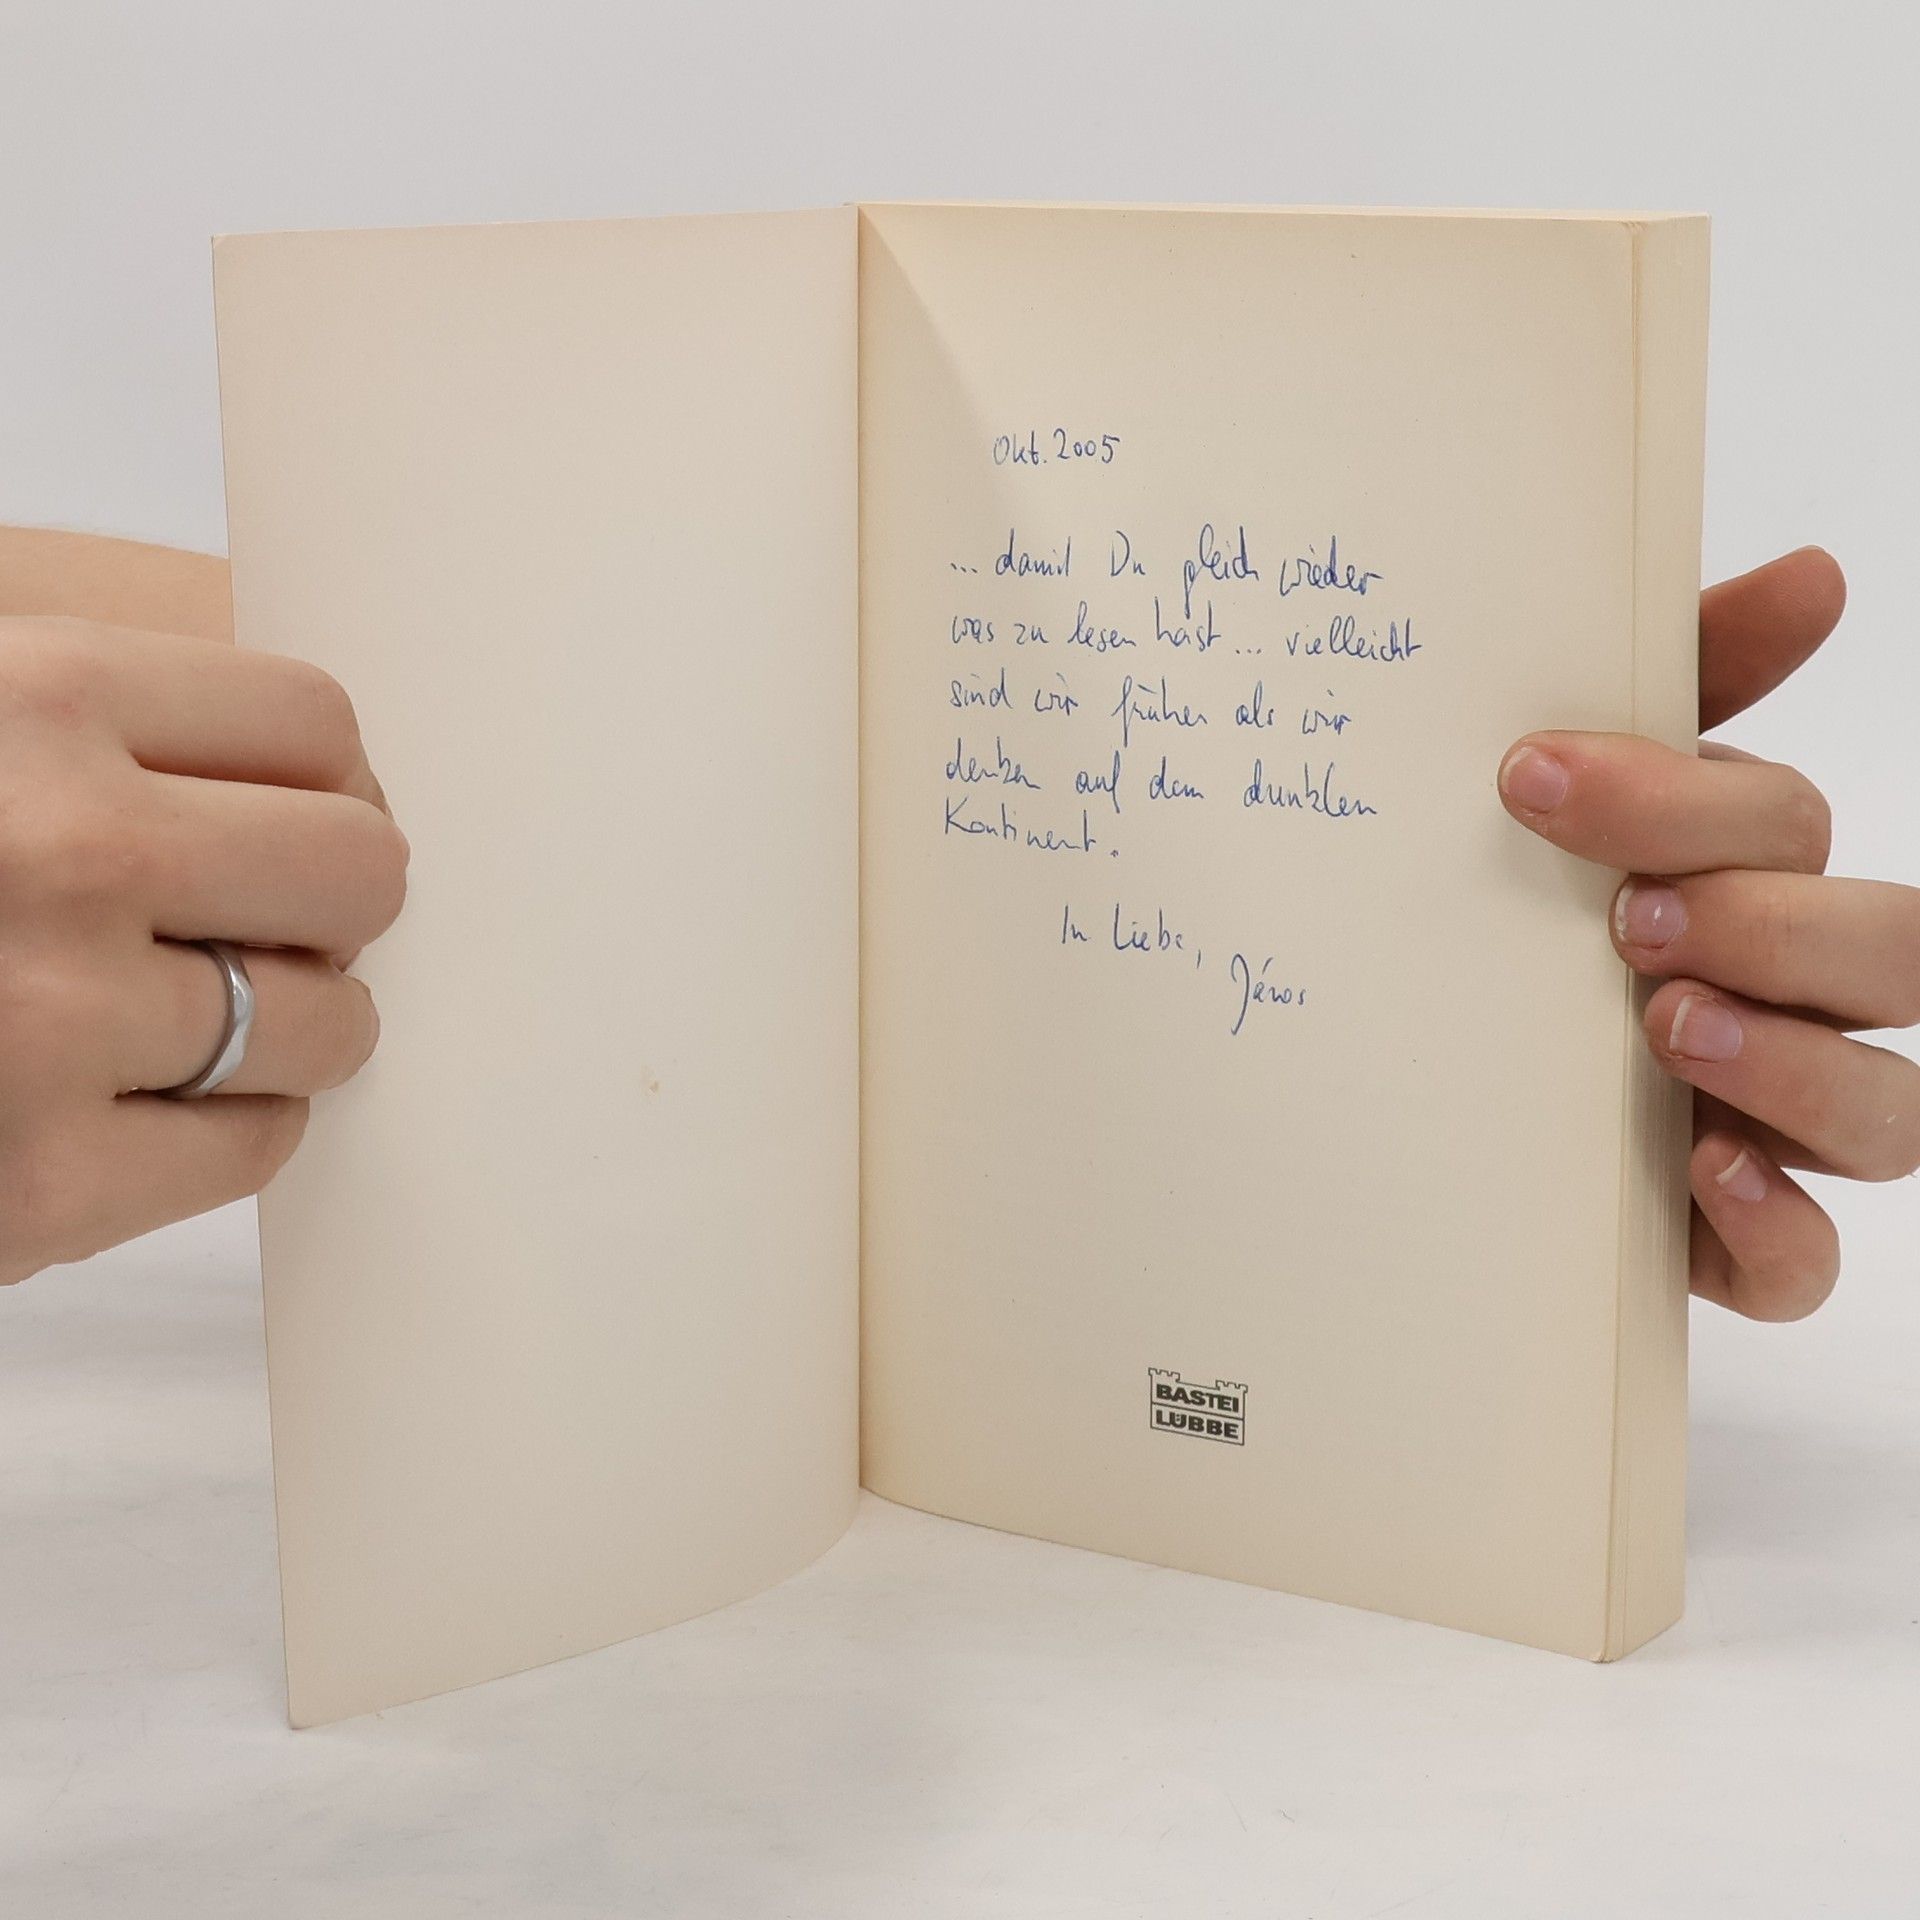 Okt. 2005
... damit Du gleich wieder
was zu lesen hast ... vielleicht
sind wir früher als wir
denken auf dem dunklen
Kontinent.
In Liebe,
János
BASTEI
LÜBBE